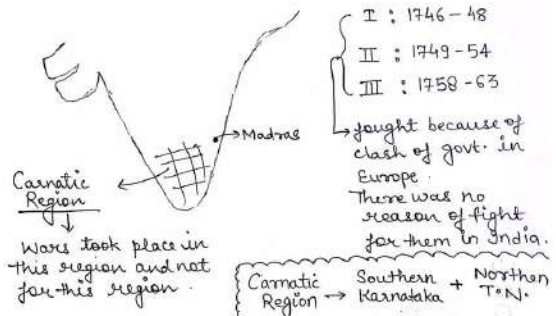 I : 1746-48
II : 1749-54
III : 1758-63
fought because of
clash of govt. in
Europe.
There was no
reason of fight
for them in India.
Madras
Carnatic
Region
Wars took place in
this region and not
for this region.
Carnatic Region → Southern Karnataka + Northen T.N.